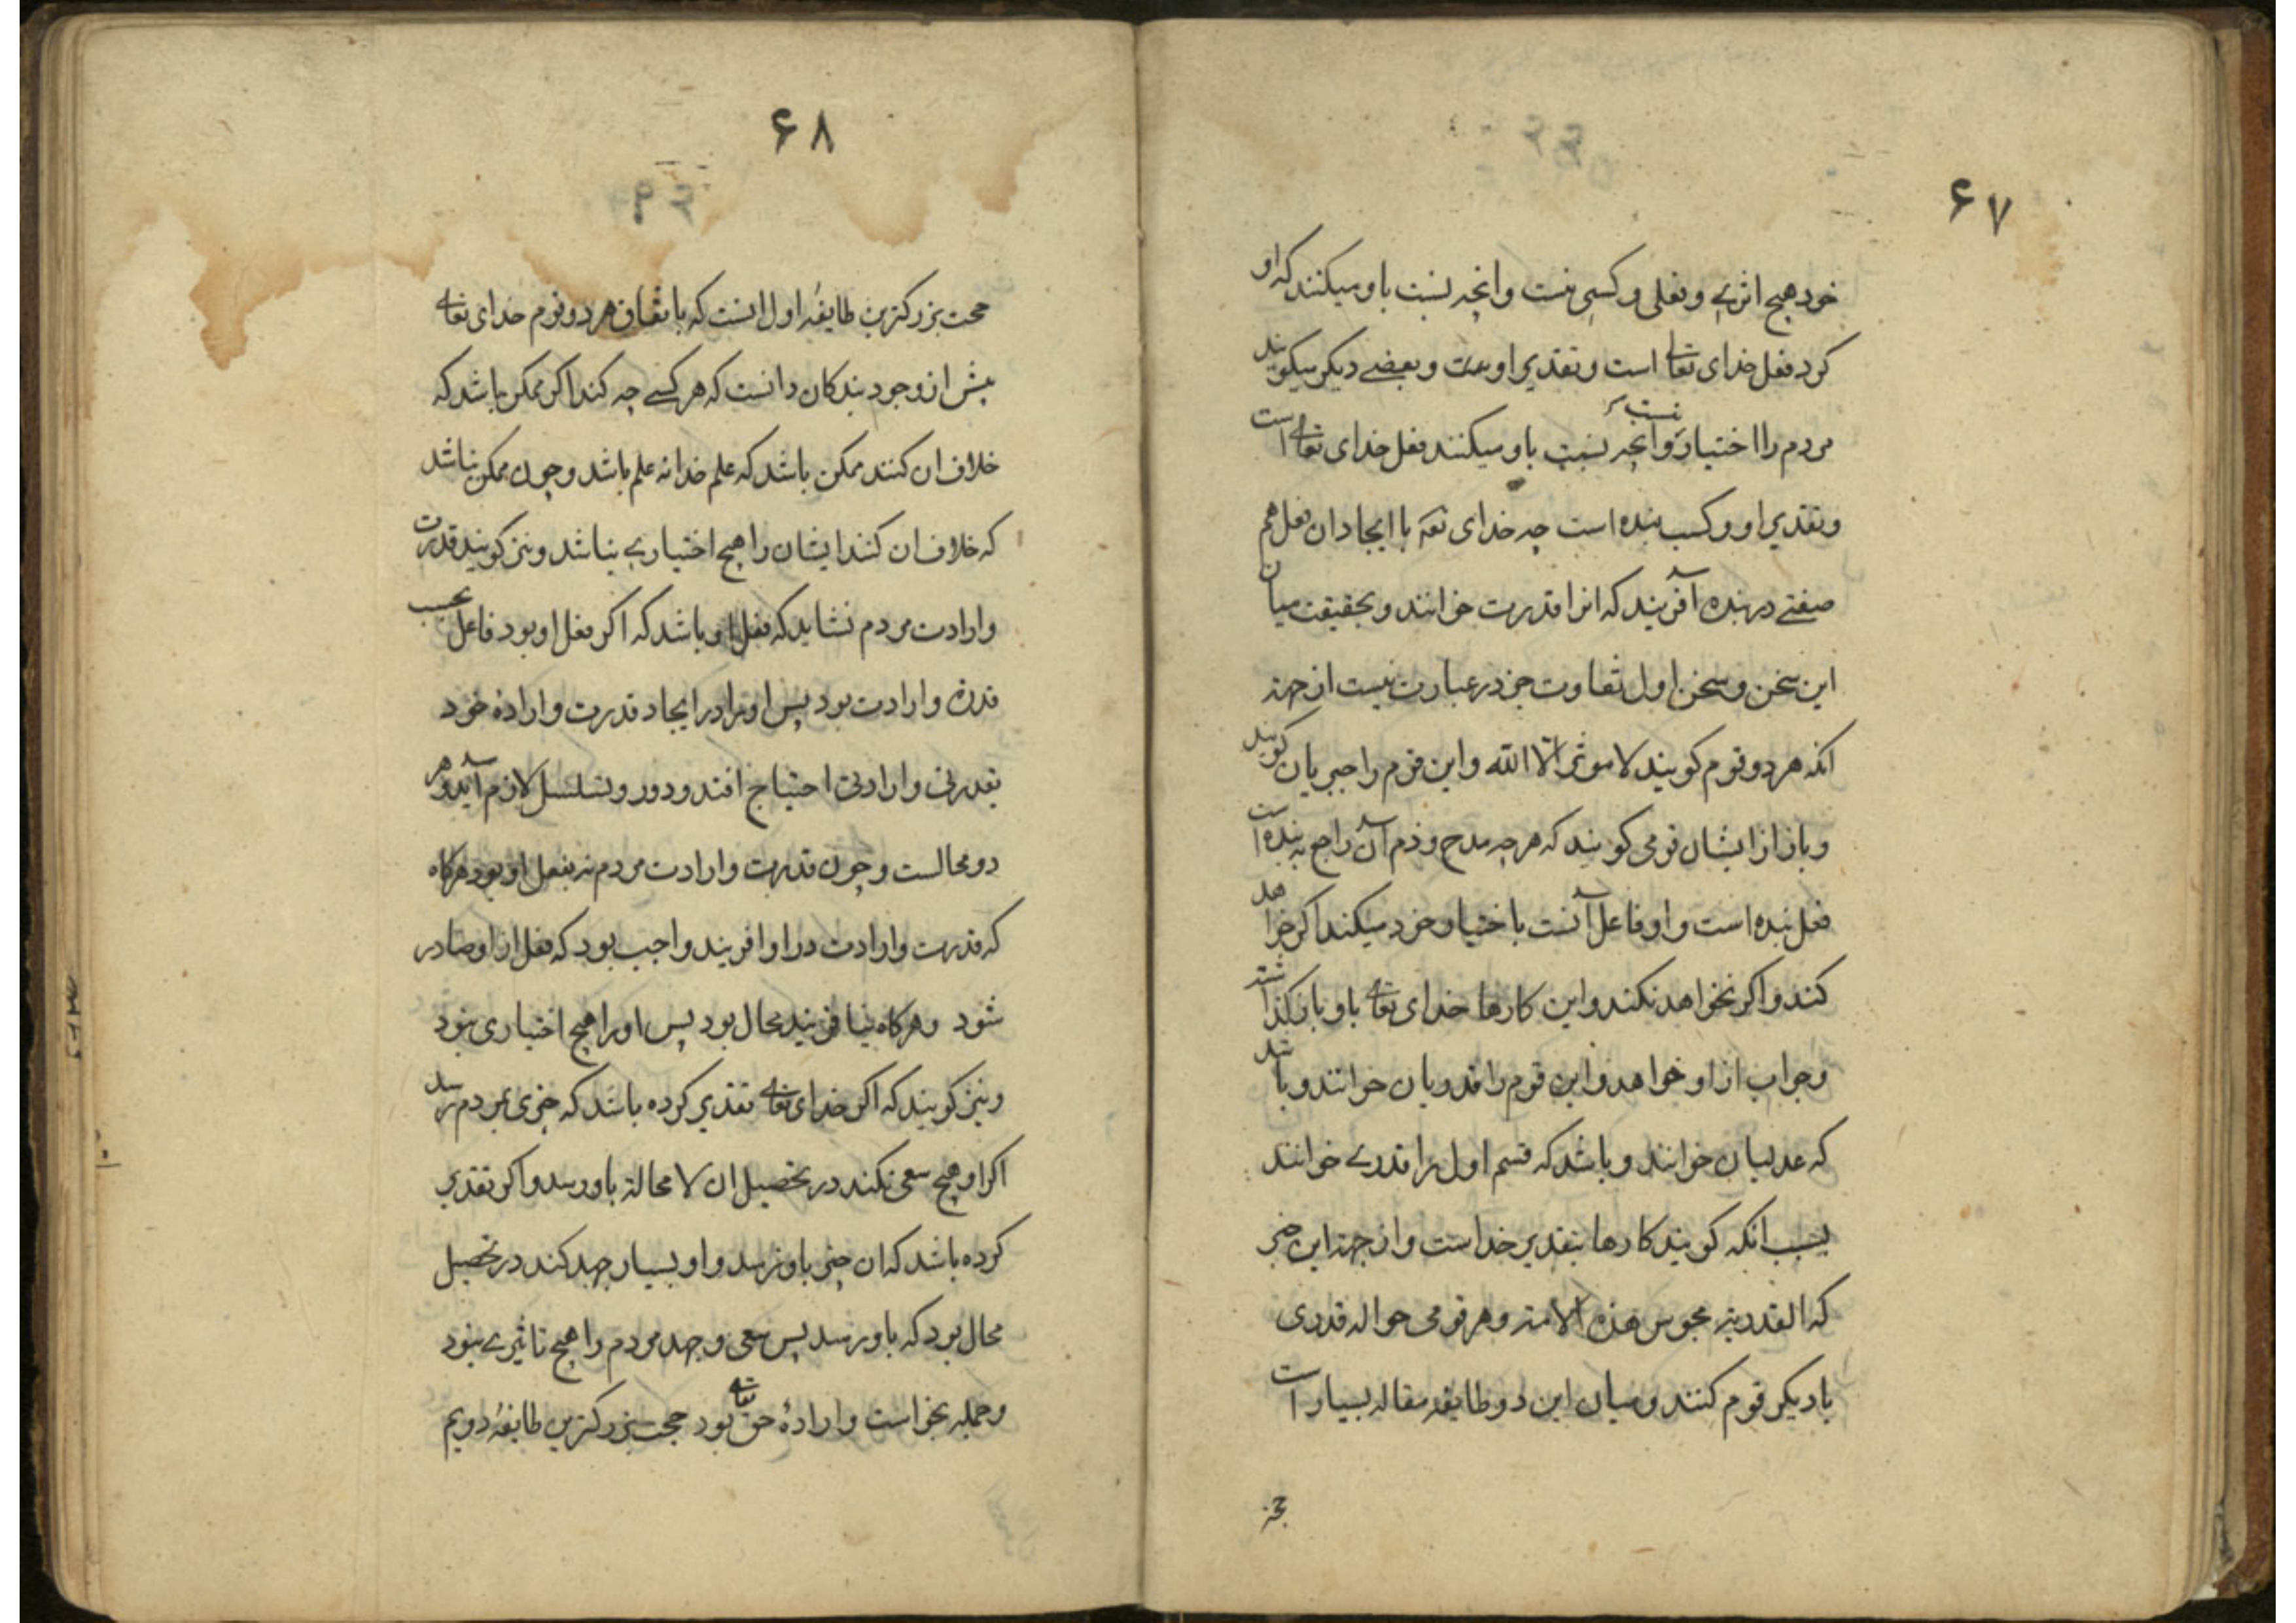 ۶۷
خود هیچ اثری و فعلی و کسبی نیست و انچه نسبت باو میکنند که او
کرد فعل خدای تعالی است و تقدیر اوست و بعضی دیکر میکویند
مردم را اختیار نیست و انچه نسبت باو میکنند فعل خدای تعالی است
و تقدیر او و کسب بنده است چه خدای تعه با ایجاد ان فعل هم
صفتی در بنده آفریند که انرا قدرت خوانند و بحقیقت میان
این سخن و سخن اول تفاوت جز در عبارت نیست از جهة
انکه هر دو قوم کویند لا موثر الا الله و این قوم را جبریان کویند
و باز از ایشان قومی کویند که هر چه مدح و ذم آن راجع به بنده است
فعل بنده است و او فاعل آنست باختیار خود میکند اکر خواهد
کند و اکر نخواهد نکند و این کارها خدای تعالی باو باز کذاشته
و جواب از او خواهد و این قوم را قدریان خوانند و باشد
که عدلیان خوانند و باشد که قسم اول را قدری خوانند
بسبب انکه کویند کارها بتقدیر خداست و از جهة این خبر
که القدریة مجوس هذه الامة و هر قومی حواله قدری
با دیکر قوم کنند و میان این دو طایفه مقاله بسیار است
۶۸
حجت بزرکترین طایفهٔ اول انست که باتفاق هر دو قوم خدای تعالی
پیش از وجود بندکان دانست که هر کسی چه کند اکر ممکن باشد که
خلاف ان کنند ممکن باشد که علم خدا نه علم باشد و چون ممکن نباشد
که خلاف ان کنند ایشان را هیچ اختیاری نباشد و نیز کویند قدرت
و ارادت مردم نشاید که فعل او باشد که اکر فعل او بود فاعل بحسب
قدرة و ارادت بود پس او را در ایجاد قدرت و ارادهٔ خود
بقدرتی و ارادتی احتیاج افتد و دور و تسلسل لازم آید و هر
دو محالست و چون قدرت و ارادت مردم نه بفعل او بود هرکاه
که قدرت و ارادت در او افریند واجب بود که فعل از او صادر
شود و هرکاه نیافریند محال بود پس او را هیچ اختیاری نبود
و نیز کویند که اکر خدای تعالی تقدیر کرده باشد که خیری بمردم رسد
اکر او هیچ سعی نکند در تحصیل ان لا محالة باو رسد و اکر تقدیر
کرده باشد که ان چیز باو نرسد و او بسیار جهد کند در تحصیل
محال بود که باو رسد پس سعی و جهد مردم را هیچ تاثیری نبود
و جمله بخواست و ارادهٔ حق تعالی بود حجت بزرکترین طایفهٔ دویم